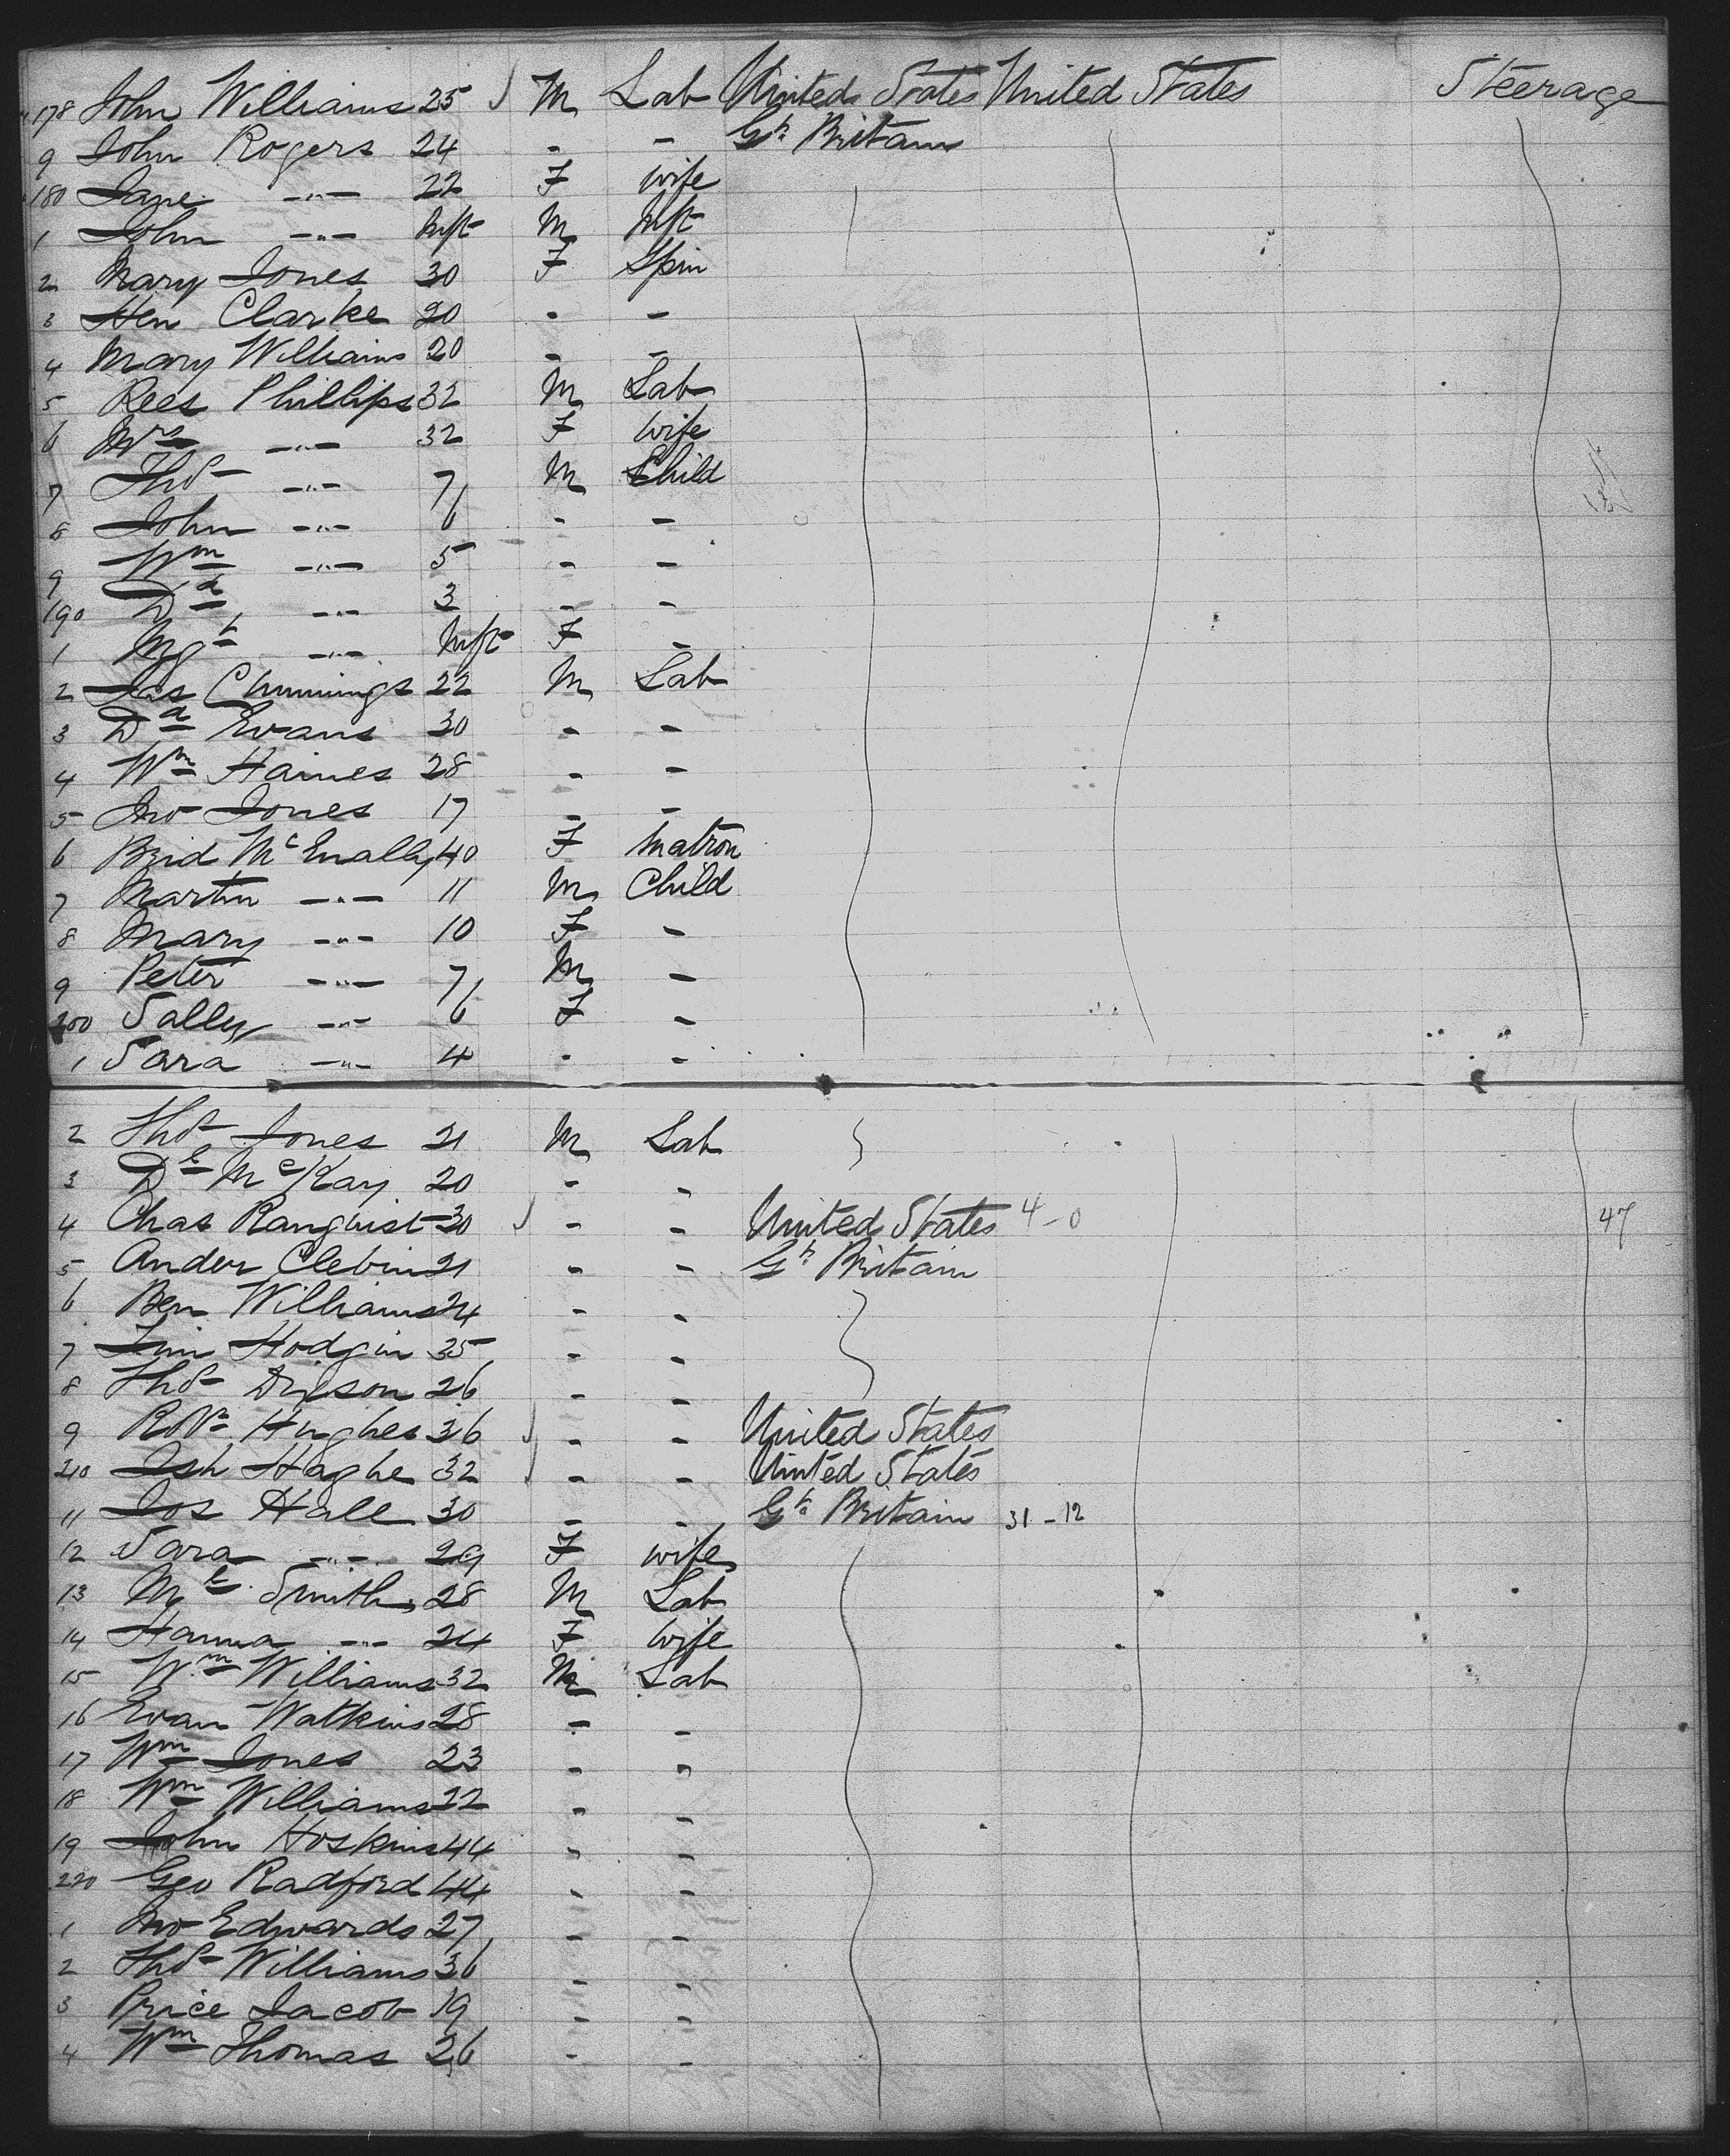 178 John Williams 25 M Lab United States United States Steerage
9 John Rogers 24 - - Gt Britain
180 Jane -"- 22 F wife
1 John -"- Inft M Inft
2 Mary Jones 30 F Spin
3 Hen Clarke 20 - -
4 Mary Williams 20 - -
5 Rees Phillips 32 M Lab
6 Mrs -"- 32 F wife
7 Thos -"- 7 M Child
8 John -"- 6 - -
9 Wm -"- 5 - -
190 Dd -"- 3 - -
1 Mgt -"- Inft F -
2 Jas Cummings 22 M Lab
3 Dd Evans 30 - -
4 Wm Haines 28 - -
5 Jno Jones 17 - -
6 Brid McEnally 40 F Matron
7 Martin -"- 11 M Child
8 Mary -"- 10 F -
9 Peter -"- 7 M -
200 Sally -"- 6 F -
1 Sara -"- 4 - -
2 Thos Jones 21 M Lab
3 Dl McKay 20 - -
4 Chas Ranquist 30 - - United States 4-0 47
5 Ander Clebin 21 - - Gt Britain
6 Ben Williams 24 - -
7 Hodgin 35 - -
8 Thos 26 - -
9 Robt Hughes 36 - - United States
210 Hughe 32 - - United States
11 Jos Hall 30 - - Gt Britain 31-12
12 Sara -"- 29 F wife
13 Ml Smith 28 M Lab
14 Hanna -"- 24 F wife
15 Wm Williams 32 M Lab
16 Evan Watkins 28 - -
17 Wm Jones 23 - -
18 Wm Williams 22 - -
19 John Hoskins 44 - -
220 Geo Radford 44 - -
1 Jno Edwards 27 - -
2 Thos Williams 36 - -
3 Price Jacob 19 - -
4 Wm Thomas 26 - -